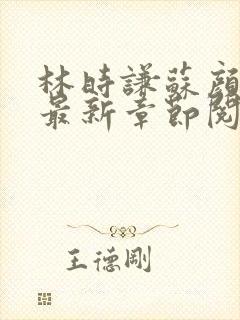 林時謙蘇顏
最新章節閱
王德剛